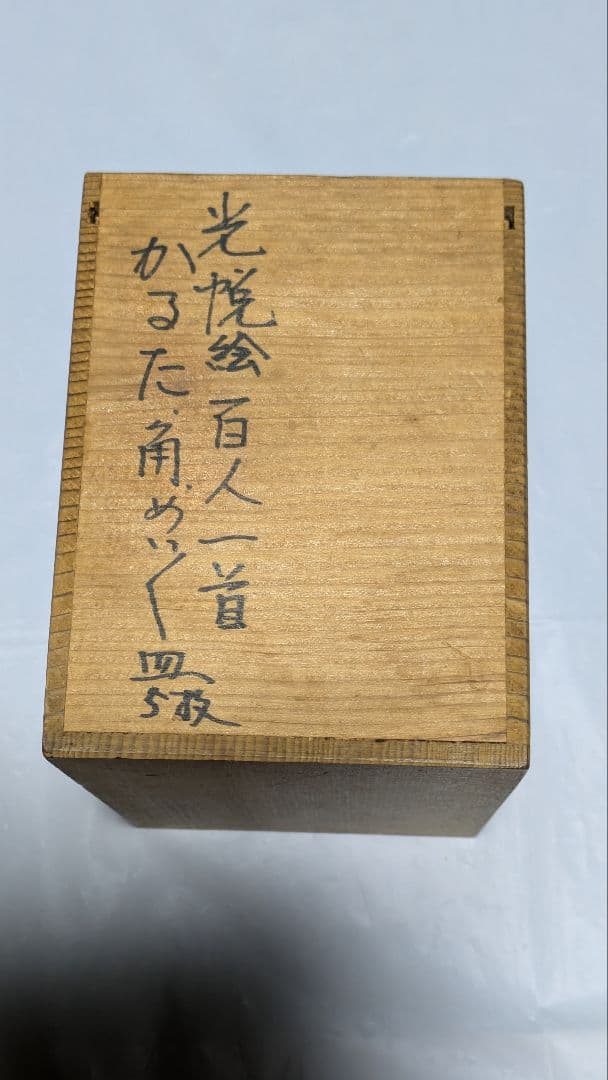 光悦絵百人一首
かるた角めいく皿
5枚